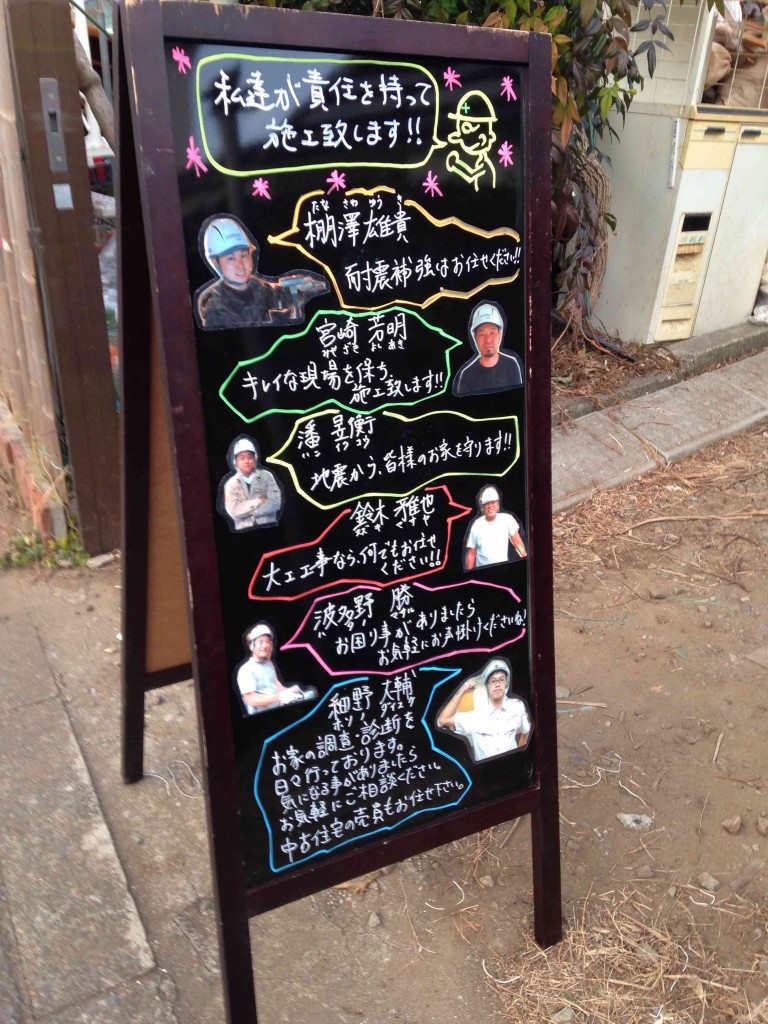 私達が責任を持って
施工致します!!
たな さわ ゆう き
棚澤雄貴
耐震補強はお任せください!!
宮崎 芳明
みや ざき よし あき
キレイな現場を保ち、
施工致します!!
潘 昱衡
ハン イク コウ
地震から、皆様のお家を守ります!!
鈴木 雅也
すず き まさ や
大工工事なら、何でもお任せ
ください!!
波多野 勝
ハ タ ノ マサル
お困り事がありましたら
お気軽にお声掛けくださいね!
細野 大輔
ホソ ノ ダイスケ
お家の調査・診断を
日々行っております。
気になる事がありましたら
お気軽にご相談ください。
中古住宅の売買もお任せ下さい。